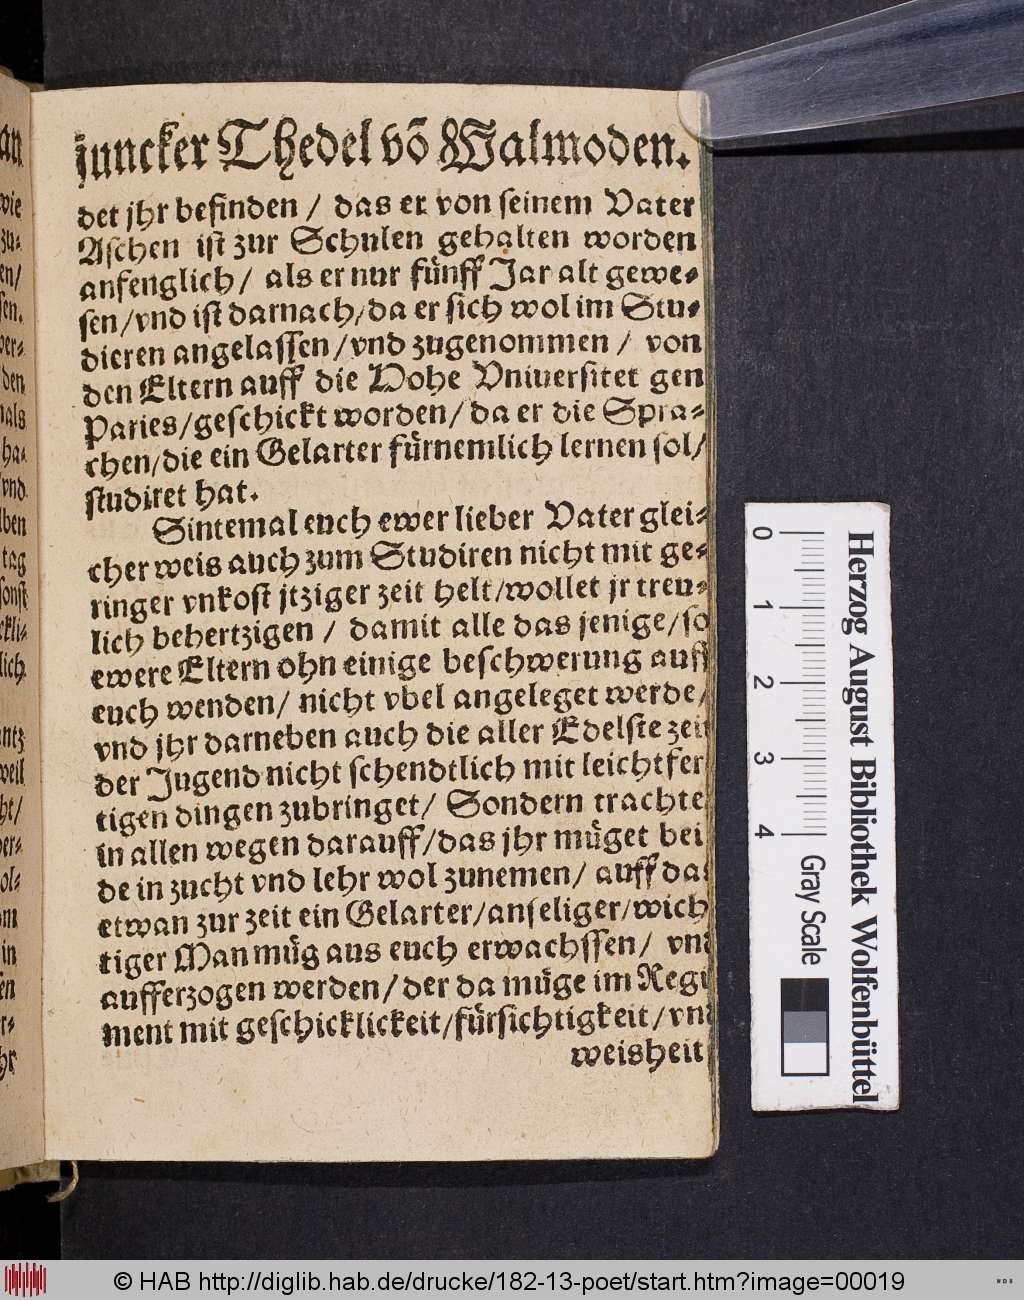 juncker Thedel võ Walmoden.
det jhr befinden / das er von seinem Vater
Aschen ist zur Schulen gehalten worden
anfenglich / als er nur fünff Jar alt gewe-
sen/vnd ist darnach/da er sich wol im Stu-
dieren angelassen/vnd zugenommen / von
den Eltern auff die Hohe Vniuersitet gen
Paries/geschickt worden/da er die Spra-
chen/die ein Gelarter fürnemlich lernen sol/
studiret hat.
Sintemal euch ewer lieber Vater glei-
cher weis auch zum Studiren nicht mit ge-
ringer vnkost jtziger zeit helt/wollet jr treu-
lich behertzigen / damit alle das jenige/so
ewere Eltern ohn einige beschwerung auff
euch wenden/ nicht vbel angeleget werde/
vnd jhr darneben auch die aller Edelste zeit
der Jugend nicht schendtlich mit leichtfer
tigen dingen zubringet/ Sondern trachte
in allen wegen darauff/das jhr müget bei
de in zucht vnd lehr wol zunemen/ auff das
etwan zur zeit ein Gelarter/anseliger/wich
tiger Man müg aus euch erwachssen/ vnd
aufferzogen werden/der da müge im Regi
ment mit geschicklickeit/fürsichtigkeit/vnd
weisheit
an
wie
zu-
en/
sen.
ver-
den
mals
ha-
vnd
lben
tag
sonst
ckli-
lich
antz
weil
ht/
ver-
ol-
om
in
en
r-
hr
0
1
2
3
4
Gray Scale
Herzog August Bibliothek Wolfenbüttel
© HAB http://diglib.hab.de/drucke/182-13-poet/start.htm?image=00019
WDB